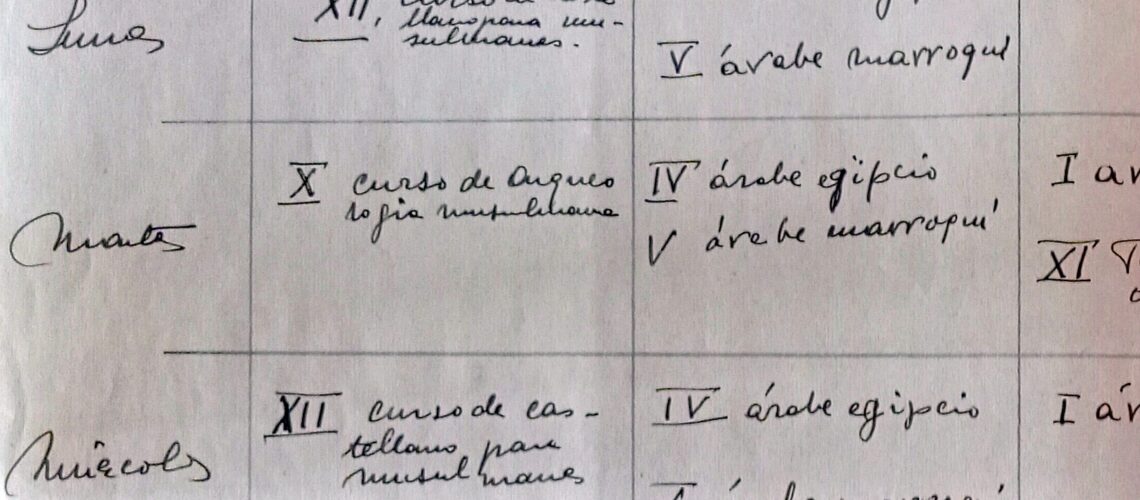 Lunes
XII, curso de caste
llano para mu-
sulmanes.
V árabe marroquí
Martes
X curso de arqueo
logía musulmana
IV árabe egipcio
V árabe marroquí
I ár
XI
Miércoles
XII curso de cas-
tellano para
musulmanes
IV árabe egipcio
I ár